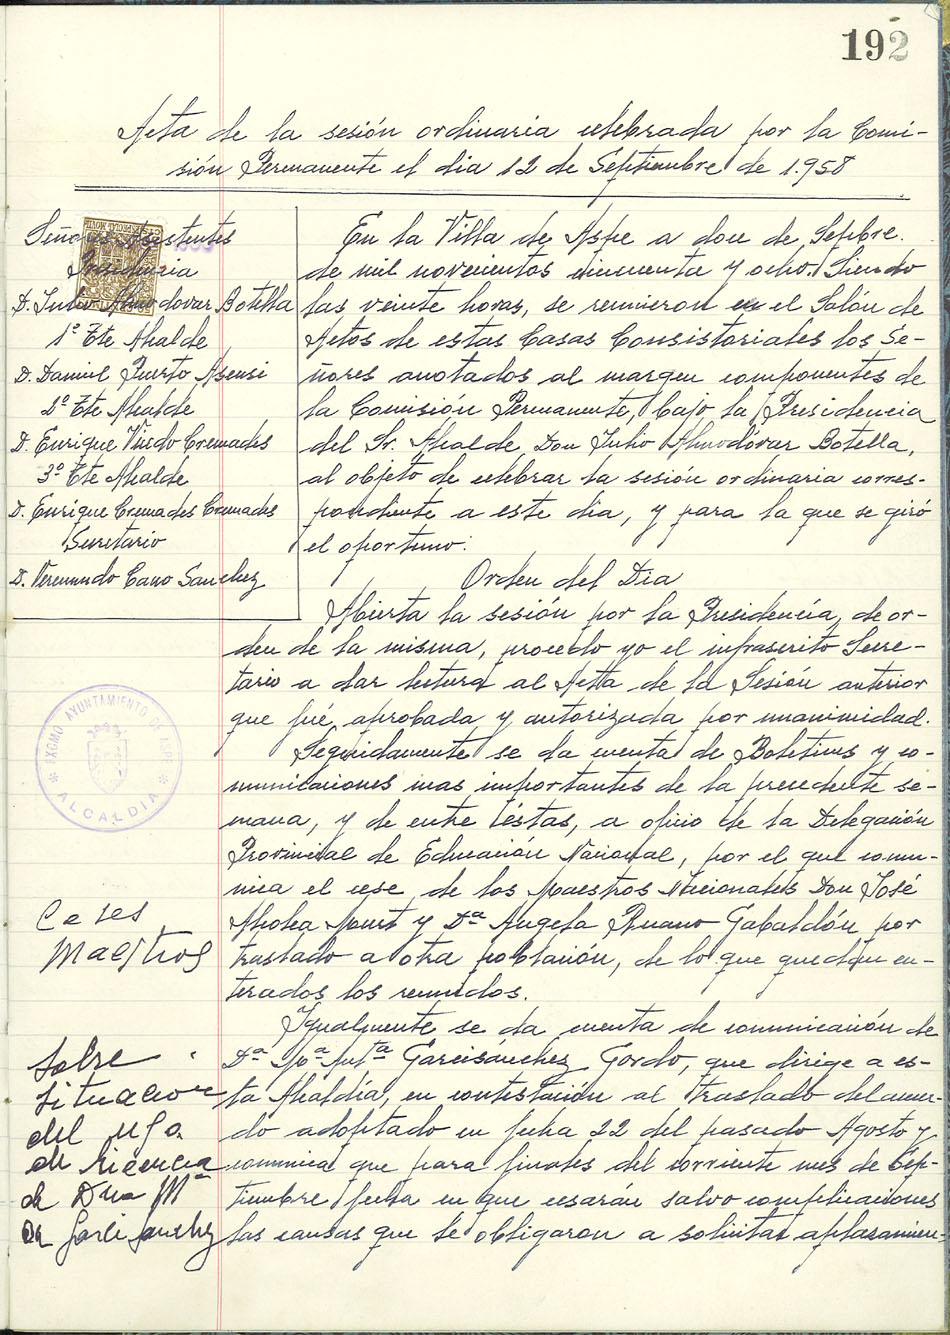 192
Acta de la sesión ordinaria celebrada por la Comi-
sión Permanente el dia 12 de Septiembre de 1.958
Señores Asistentes
Presidencia
D. Julio Almodovar Botella
1º Tte Alcalde
D. Daniel Puerto Asensi
2º Tte Alcalde
D. Enrique Cremades
3º Tte Alcalde
D. Enrique Cremades Cremades
Secretario
D. Veremundo Cano Sanchez
En la Villa de Aspe a doce de Sepbre.
de mil novecientos cincuenta y ocho. Siendo
las veinte horas, se reunieron en el Salón de
Actos de estas Casas Consistoriales los Se-
ñores anotados al margen componentes de
la Comisión Permanente, bajo la Presidencia
del Sr. Alcalde Don Julio Almodóvar Botella,
al objeto de celebrar la sesión ordinaria corres-
pondiente a este dia, y para la que se giró
el oportuno:
Orden del Dia
Abierta la sesión por la Presidencia, de or-
den de la misma, procedo yo el infrascrito Secre-
tario a dar lectura al Acta de la Sesión anterior
que fué, aprobada y autorizada por unanimidad.
EXCMO AYUNTAMIENTO DE ASPE
* ALCALDIA *
Seguidamente se da cuenta de Boletines y co-
municaciones mas importantes de la precedente se-
mana, y de entre éstas, a oficio de la Delegación
Provincial de Educación Nacional, por el que comu-
nica el cese de los Maestros Nacionales Don José
y Dª Angela Ruano Gabaldón por
traslado a otra población, de lo que quedan en-
terados los reunidos.
Ceses
Maestros
Igualmente se da cuenta de comunicación de
Dª Garcisánchez Gordo, que dirige a es-
ta Alcaldía, en contestación al traslado del acuer-
do adoptado en fecha 22 del pasado Agosto y
comunica que para finales del corriente mes de Sep-
tiembre fecha en que cesarán salvo complicaciones
las causas que le obligaron a solicitar aplazamien-
Sobre
situacion
del
de licencia
de Dña Mª
Garcisanchez